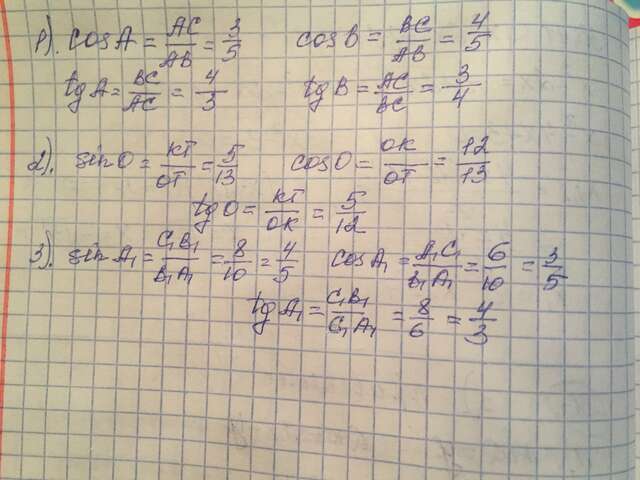 1). cosA = AC/AB = 3/5 cosB = BC/AB = 4/5
tgA = BC/AC = 4/3 tgB = AC/BC = 3/4
2). sinO = KT/OT = 5/13 cosO = OK/OT = 12/13
tgO = KT/OK = 5/12
3). sin A₁ = C₁B₁/B₁A₁ = 8/10 = 4/5 cosA₁ = A₁C₁/B₁A₁ = 6/10 = 3/5
tg A₁ = C₁B₁/C₁A₁ = 8/6 = 4/3